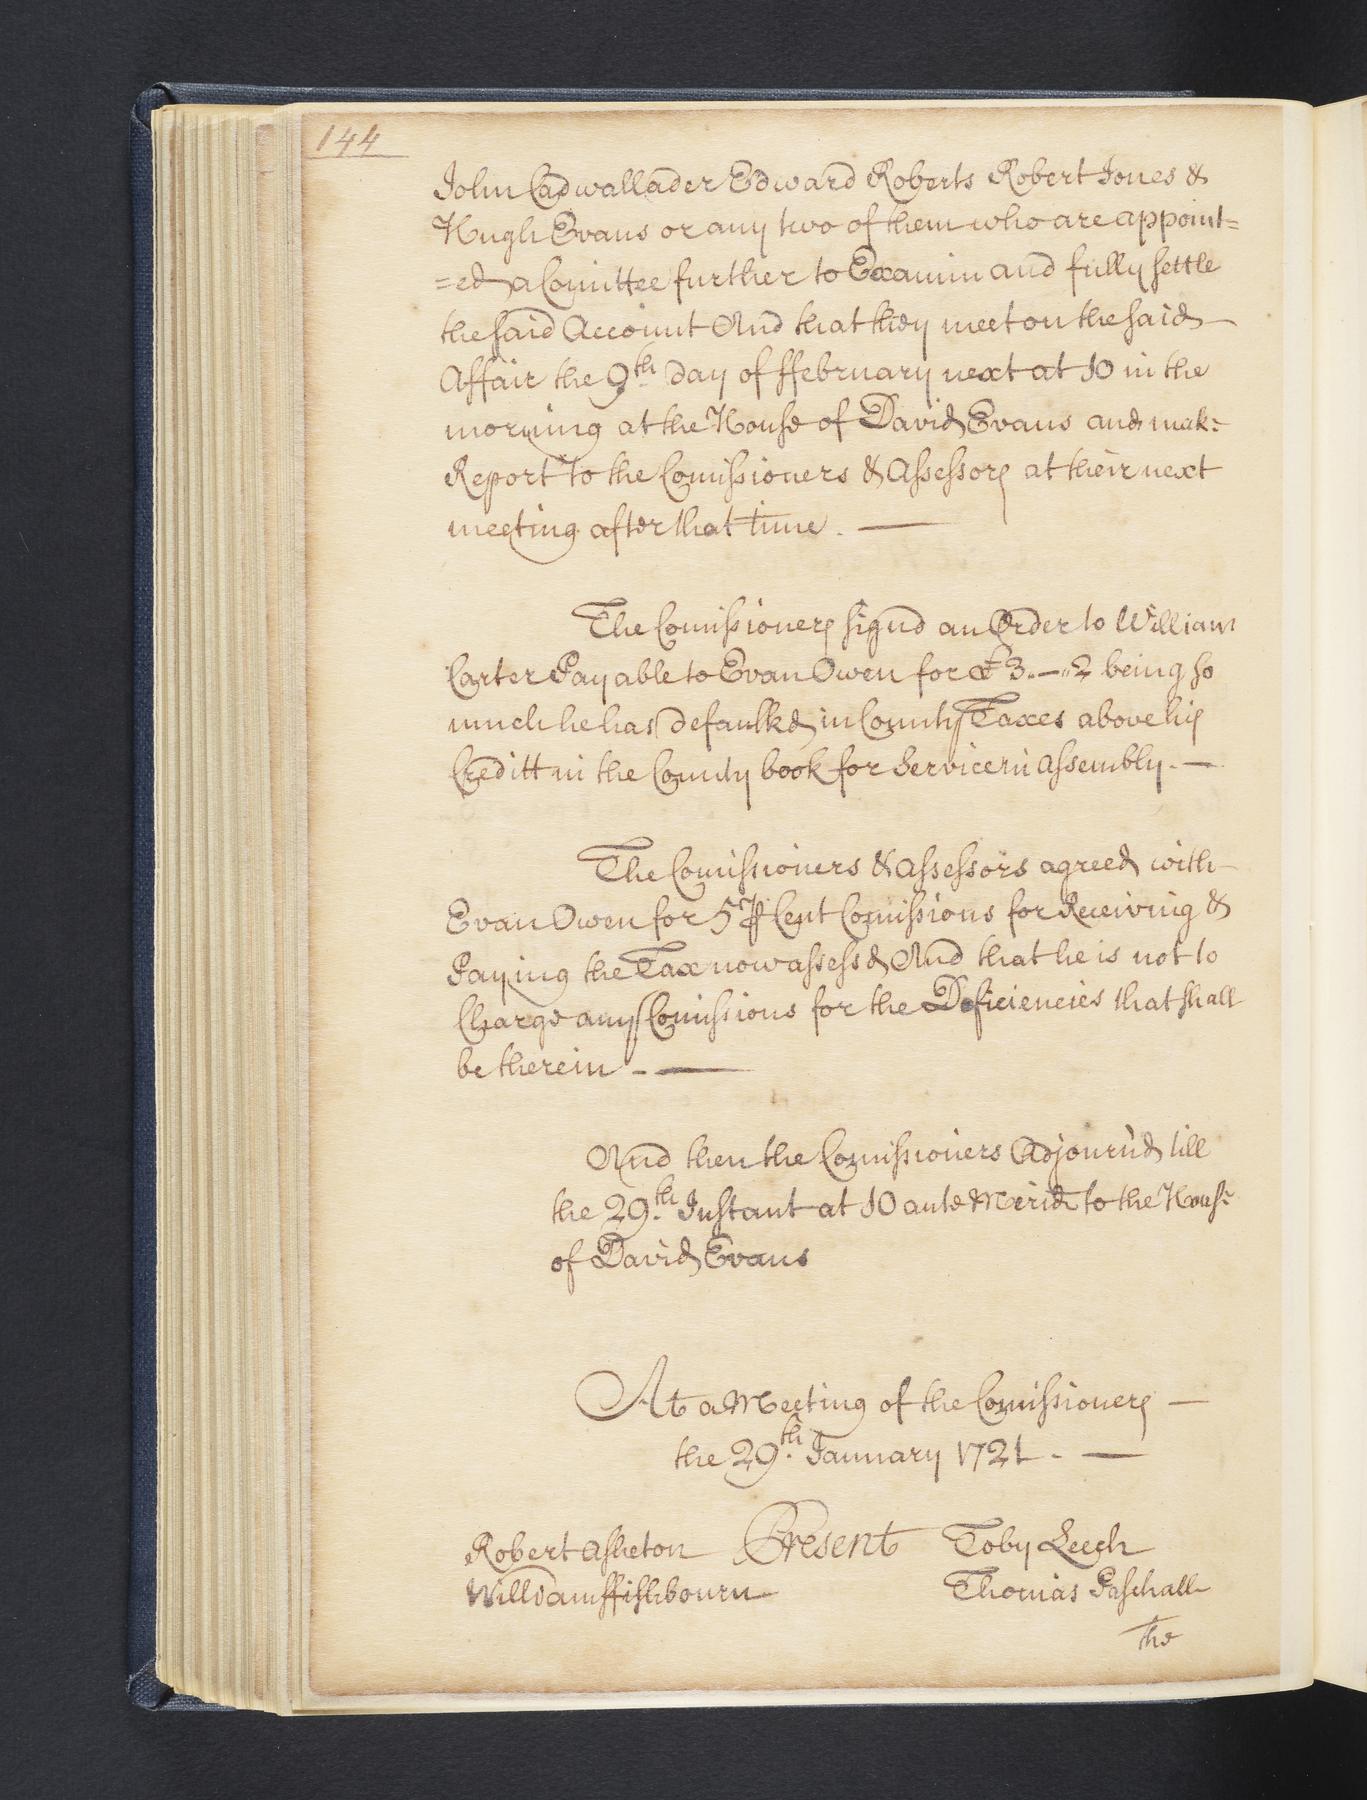 144
John Cadwallader Edward Roberts Robert Jones &
Hugh Evans or any two of them who are appoint=
=ed a Comittee further to Examin and fully settle
the said Account And that they meet on the said
Affair the 9th day of ffebruary next at 10 in the
morning at the House of David Evans and make
Report to the Comissioners & Assessors at their next
meeting after that time. —
The Comissioners signd an Order to William
Carter Payable to Evan Owen for £3"—"2 being so
much he has defaulkd in County Taxes above his
Creditt in the County book for Service in Assembly. —
The Comissioners & Assessors agreed with
Evan Owen for 5 ⅌ Cent Comissions for Receiving &
Paying the Tax now assessd And that he is not to
Charge any Comissions for the Deficiencies that shall
be therein. —
And then the Comissioners Adjournd till
the 29th Instant at 10 ante Merid to the House
of David Evans
At a Meeting of the Comissioners —
the 29th January 1721. —
Robert Asheton Present Toby Leech
William ffishbourn Thomas Paschall
the